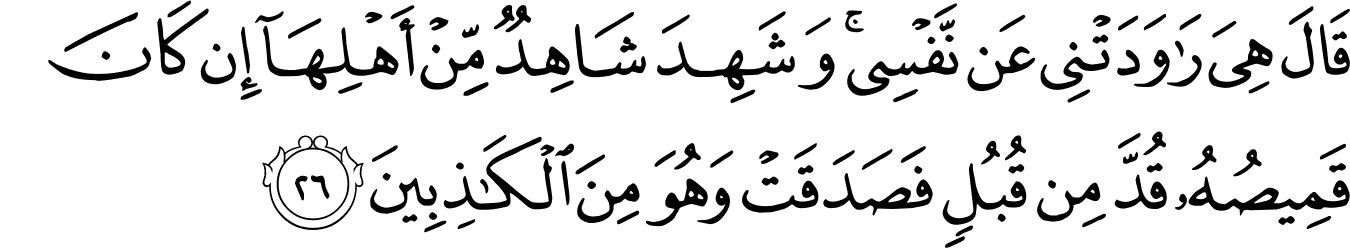 قَالَ هِىَ رَٰوَدَتْنِى عَن نَّفْسِى ۚ وَشَهِدَ شَاهِدٌ مِّنْ أَهْلِهَآ إِن كَانَ
قَمِيصُهُۥ قُدَّ مِن قُبُلٍ فَصَدَقَتْ وَهُوَ مِنَ ٱلْكَـٰذِبِينَ ٢٦